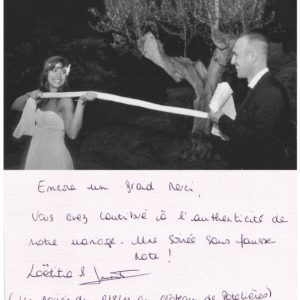 Encore un grand Merci,
Vous avez contribué à l'authenticité de
notre mariage. Une soirée sans fausse
Note !
Laëtitia &
(Les mariés du au château de